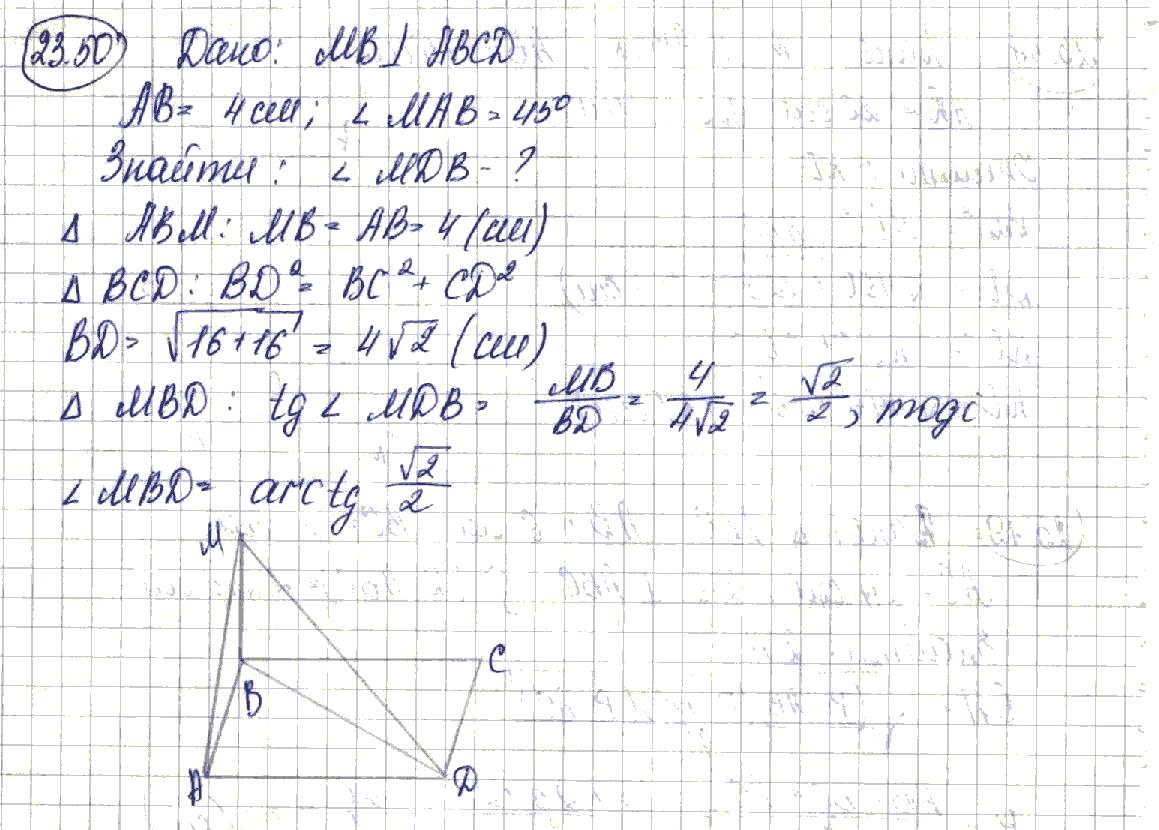 23.50 Дано: MB ⊥ ABCD
AB = 4 см; ∠ MAB = 45°
Знайти: ∠ MDB - ?
Δ ABM: MB = AB = 4 (см)
Δ BCD: BD² = BC² + CD²
BD = √16+16 = 4√2 (см)
Δ MBD: tg ∠ MDB = MB/BD = 4/4√2 = √2/2, тоді
∠ MBD = arctg √2/2
M
C
B
A
D